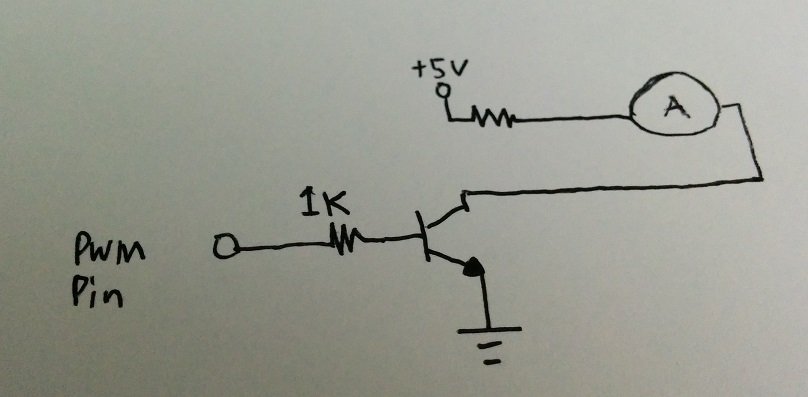 +5V
A
1K
PWM
Pin